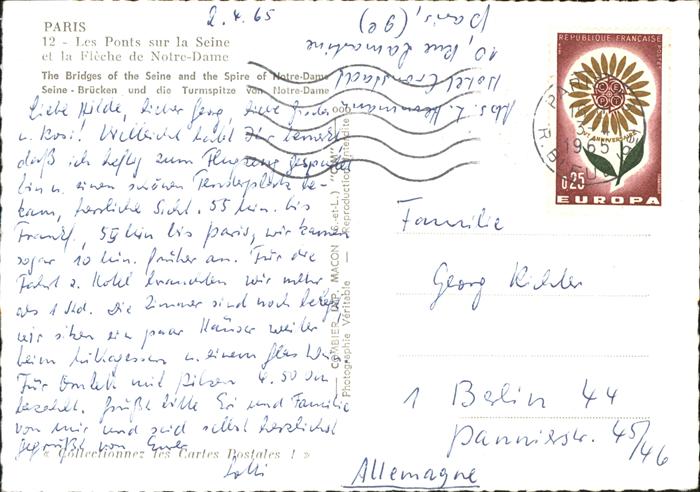 PARIS
12 - Les Ponts sur la Seine
et la Flèche de Notre-Dame
The Bridges of the Seine and the Spire of Notre-Dame
Seine - Brücken und die Turmspitze von Notre-Dame
2.4.65
Liebe Hilde, lieber Georg, liebe
u. Rosi! Vielleicht habt Ihr bemerkt
daß ich heftig zum Flugzeug gespurtet
bin u. einen schönen Fensterplatz be-
kam, herrliche Sicht. 55 Min. bis
Frankf., 55 Min bis Paris, wir kamen
sogar 10 Min. früher an. Für die
Fahrt z. Hotel brauchten wir mehr
als 1 Std. Die Zimmer sind noch belegt,
wir sitzen ein paar Häuser weiter
beim Mittagessen u. einem Glas Wein
Für Omlett mit Pilzen 4.50 DM
bezahlt. Grüßt bitte und Familie
von mir und seid selbst herzlichst
gegrüßt von Eurer
« Collectionnez les Cartes Postales ! »
Abs. L. Herrmann
Hotel
10, Rue Lamartine
Paris, (9e)
COMBIER IMP. MACON (S.-et-L.) "CIM"
Photographie Véritable — Reproduction interdite
REPUBLIQUE FRANÇAISE
POSTES
Vme ANNIVERSAIRE
0,25
EUROPA
PARIS
1965
Familie
Georg Richter
1 Berlin 44
Pannierstr. 45/46
Allemagne